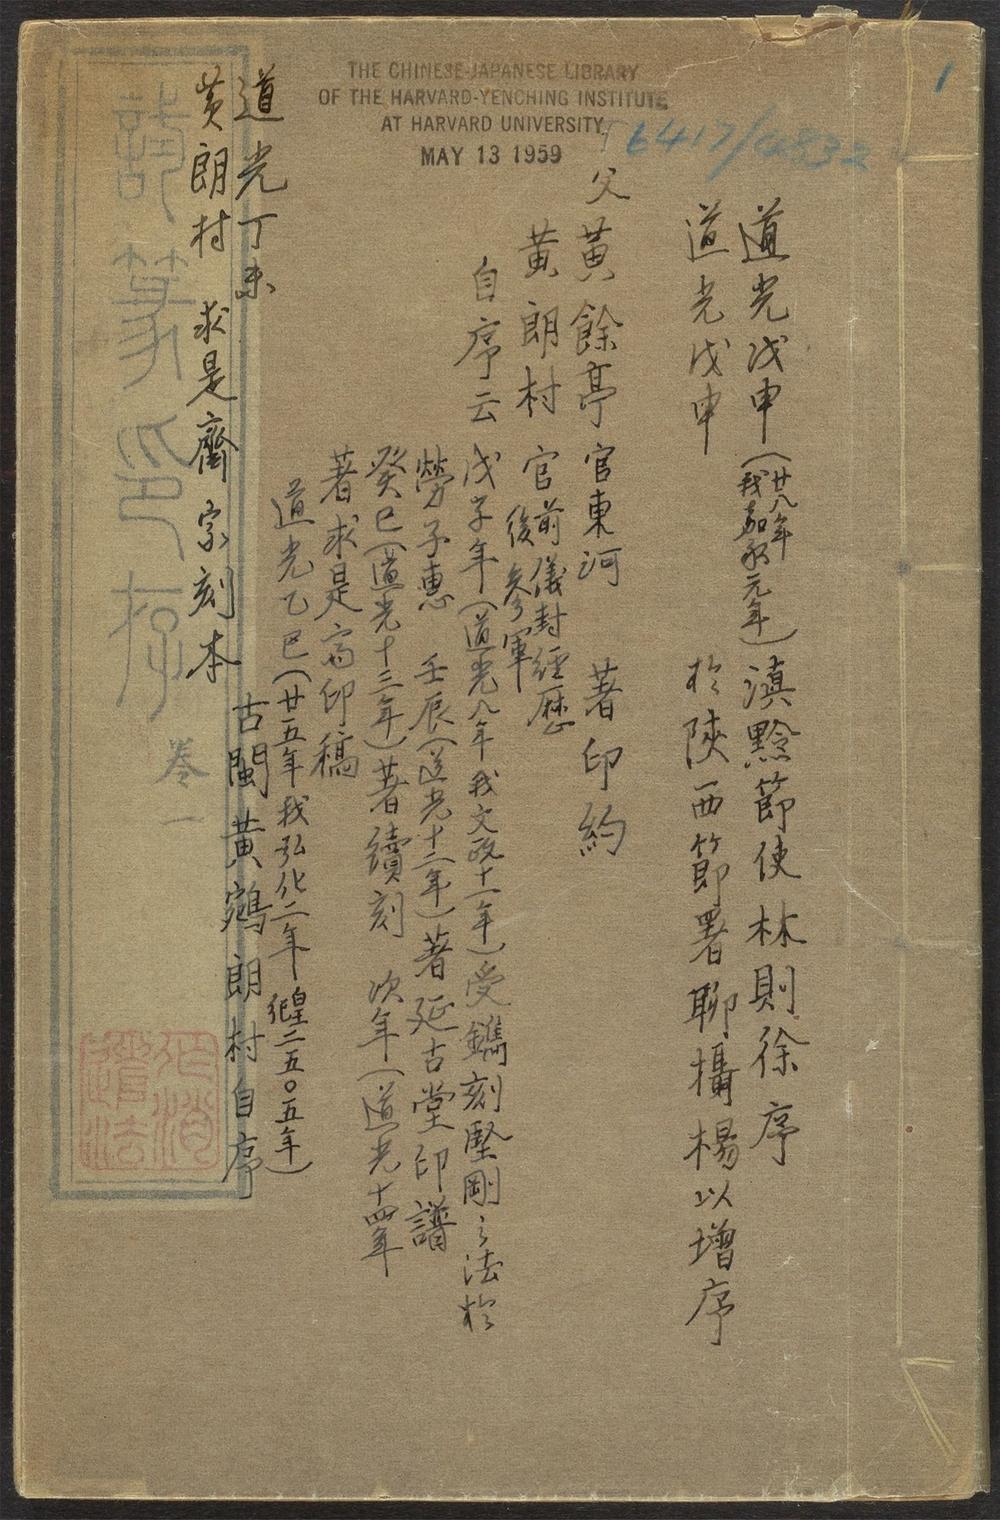 THE CHINESE-JAPANESE LIBRARY
OF THE HARVARD-YENCHING INSTITUTE
AT HARVARD UNIVERSITY
MAY 13 1959
T6417/4832
1
道光戊申(廿八年我嘉永元年)滇黔節使林則徐序
道光戊申 於陝西節署聊攝楊以增序
父黃餘亭 官東河 著印約
黃朗村 官前儀封經歷後參軍
自序云 戊子年(道光八年我文政十一年)受鐫刻堅剛之法於
勞子惠 壬辰(道光十二年)著延古堂印譜
癸巳(道光十三年)著續刻 次年(道光十四年
著求是齋印稿
道光乙巳(廿五年我弘化二年皇紀二五〇五年)
古閩黃鵷朗村自序
道光丁未
黃朗村 求是齋家刻本
篆印存
卷一